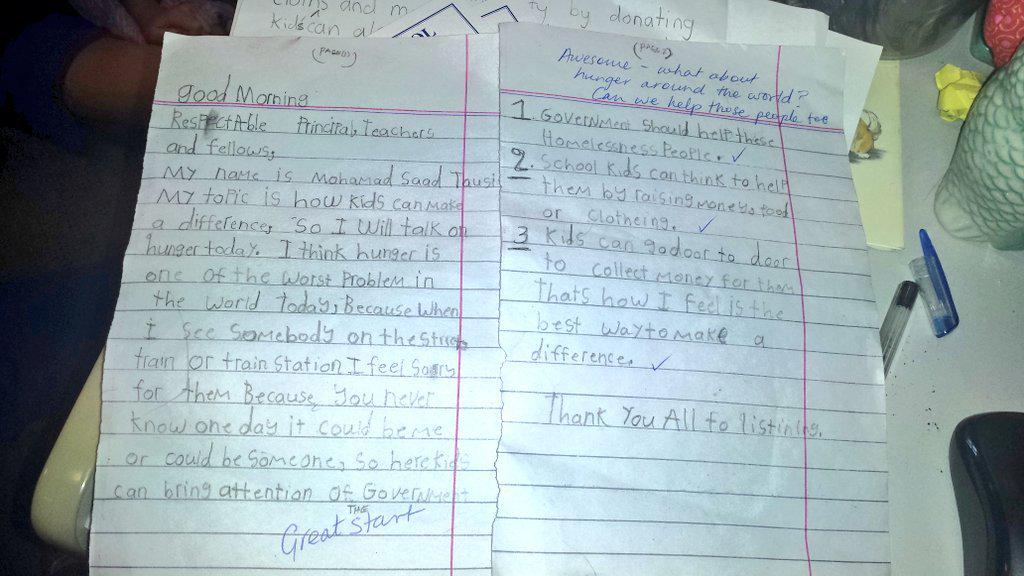 cloths and m
ty by donating
kids can al
(PAGE 1)
good Morning
Respectable Principal, Teachers
and fellows,
My name is Mohamad Saad Tausi
My topic is how kids can make
a difference, So I Will talk on
hunger today. I think hunger is
one of the worst Problem in
the world Today, Because when
I see somebody on the street
train or train station I feel sorry
for them Because, you never
know one day it could be me
or could be someone, so here kids
can bring attention of Government
THE
Great Start
(PAGE 2)
Awesome - what about
hunger around the world?
Can we help those people too
1. Government should help these
Homelessness People. ✓
2. School kids can think to help
them by raising money, food
or clotheing. ✓
3 Kids can go door to door
to collect money for them
thats how I feel is the
best way to make a
difference. ✓
Thank You All fo listining.